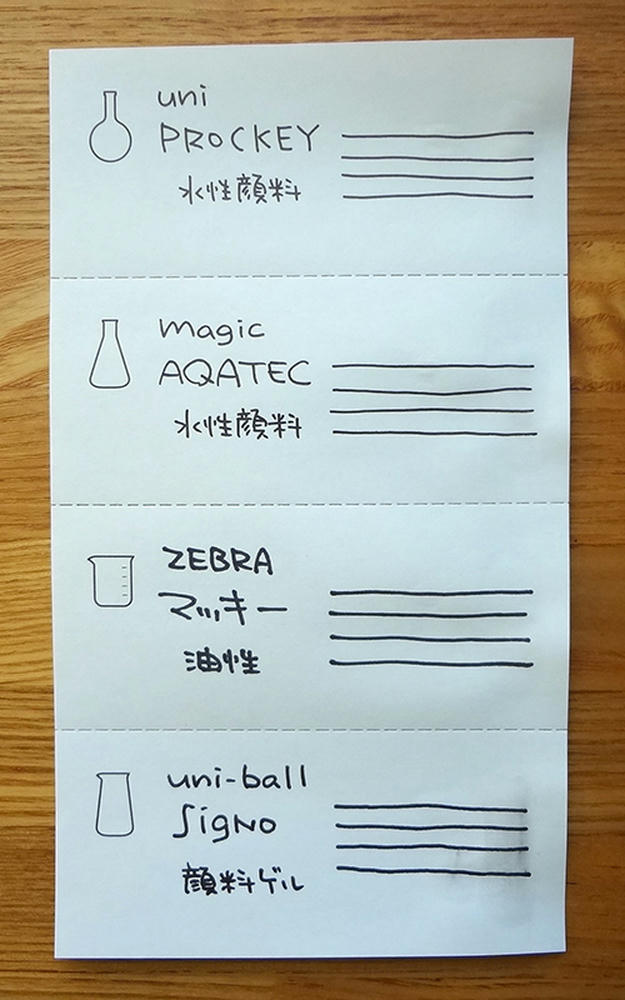 uni
PROCKEY
水性顔料
magic
AQATEC
水性顔料
ZEBRA
マッキー
油性
uni-ball
SigNo
顔料ゲル